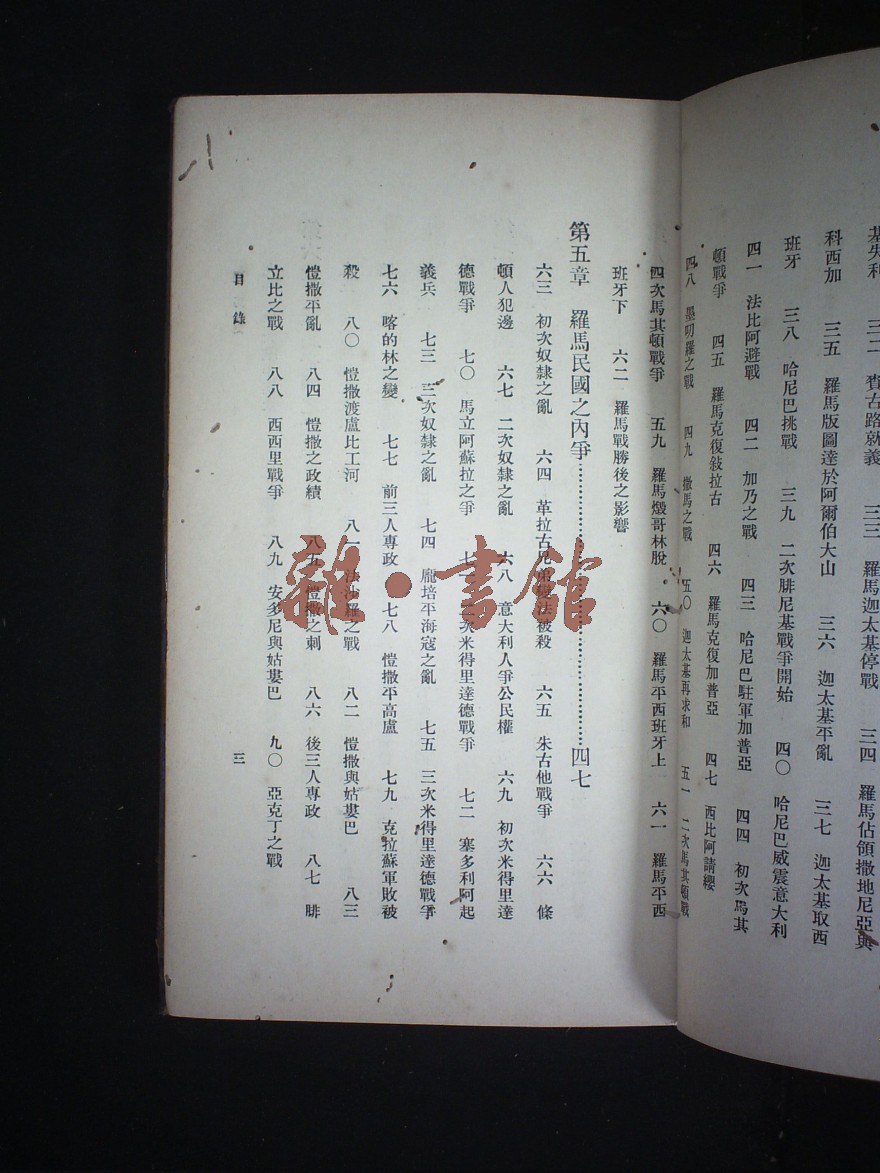 基失利　三二　賚古路就義　三三　羅馬迦太基停戰　三四　羅馬佔領撒地尼亞與
科西加　三五　羅馬版圖達於阿爾伯大山　三六　迦太基平亂　三七　迦太基取西
班牙　三八　哈尼巴挑戰　三九　二次腓尼基戰爭開始　四〇　哈尼巴威震意大利
四一　法比阿避戰　四二　加乃之戰　四三　哈尼巴駐軍加普亞　四四　初次馬其
頓戰爭　四五　羅馬克復敍拉古　四六　羅馬克復加普亞　四七　西比阿請纓
四八　墨叨羅之戰　四九　撒馬之戰　五〇　迦太基再求和　五一　二次馬其頓戰
四次馬其頓戰爭　五九　羅馬燬哥林脫　六〇　羅馬平西班牙上　六一　羅馬平西
班牙下　六二　羅馬戰勝後之影響
第五章　羅馬民國之內爭……四七
六三　初次奴隸之亂　六四　革拉古兄弟變法被殺　六五　朱古他戰爭　六六　條
頓人犯邊　六七　二次奴隸之亂　六八　意大利人爭公民權　六九　初次米得里達
德戰爭　七〇　馬立阿蘇拉之爭　七一　二次米得里達德戰爭　七二　塞多利阿起
義兵　七三　三次奴隸之亂　七四　龐培平海寇之亂　七五　三次米得里達德戰爭
七六　喀的林之變　七七　前三人專政　七八　愷撒平高盧　七九　克拉蘇軍敗被
殺　八〇　愷撒渡盧比工河　八一　法沙羅之戰　八二　愷撒與姑婁巴　八三
愷撒平亂　八四　愷撒之政績　八五　愷撒之刺　八六　後三人專政　八七　腓
立比之戰　八八　西西里戰爭　八九　安多尼與姑婁巴　九〇　亞克丁之戰
目錄　三
雜·書館